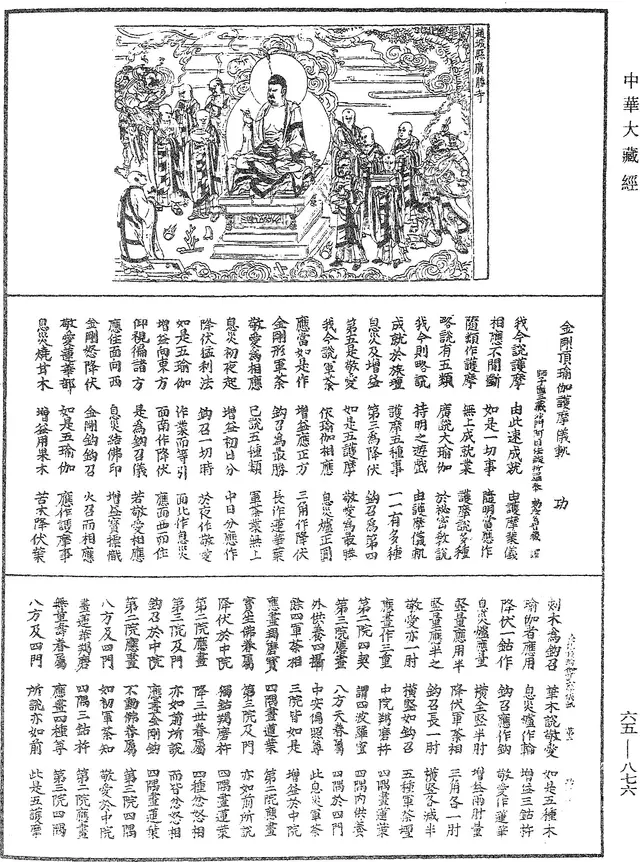 中華大藏經
趙城縣廣勝寺
金剛頂瑜伽護摩儀軌 功
我今說護摩 由此速成就 由護摩業儀
相應不間斷 如是一切事 隨明當應作
隨類作護摩 無上成就業 護摩說多種
略說有五類 廣說大瑜伽 於祕密教說
我今則略說 持明之遊戲 由護摩儀軌
成就於族壇 護摩五種事 一一有多種
息災及增益 第三為降伏 鈎召為第四
第五是敬愛 如是五護摩 敬愛為最勝
我今說軍荼 依瑜伽相應 息災爐正圓
應當如是作 增益應正方 三角作降伏
金剛形軍荼 鈎召為最勝 長作蓮華葉
敬愛為相應 已說五種類 軍荼業無上
息災初夜起 增益初日分 中日分應作
降伏猛利法 鈎召一切時 於夜作敬愛
如是五瑜伽 作業而等引 面北作息災
增益面東方 面南作降伏 應面西而住
仰視徧諸方 是為鈎召儀 若敬愛相應
應住面向西 息災結佛印 增益寶幖幟
金剛怒降伏 金剛鈎鈎召 火召而相應
敬愛蓮華部 如是五瑜伽 應作護摩事
息災燒甘木 增益用果木 苦木降伏葉
刾木為鈎召 華木說敬愛 如是五種木
瑜伽者應用 息災爐作輪 增益三鈷杵
降伏一鈷作 鈎召應作鈎 敬愛作蓮華
息災爐應量 橫全竪半肘 增益兩肘量
竪量應用半 降伏軍荼相 三角各一肘
竪量應半之 鈎召長一肘 橫竪各減半
敬愛亦一肘 橫竪如鈎召 五種軍荼壇
應畫作三重 中院羯磨杵 四隅畫蓮葉
第二院四契 謂四波羅蜜 四隅內供養
第三院應畫 八方天眷屬 四隅於四門
外供養四攝 中安徧照尊 此息災軍荼
餘四軍荼相 三院皆如是 增益於中院
應畫羯磨寶 四隅畫蓮葉 第二院應畫
寶生佛眷屬 第三院及門 亦如前所說
降伏於中院 獨鈷羯磨杵 四隅畫蓮葉
第二院應畫 降三世眷屬 四種忿怒相
第三院及門 亦如前所說 而皆忿怒相
鈎召於中院 應畫金剛鈎 四隅畫蓮葉
第二院應畫 不動佛眷屬 第三院四隅
八方及四門 如初軍荼知 敬愛於中院
畫蓮華羯磨 四隅三鈷杵 第二院應畫
無量壽眷屬 應畫四種尊 第三院四隅
八方及四門 所說亦如前 此是五護摩
六五—八七六